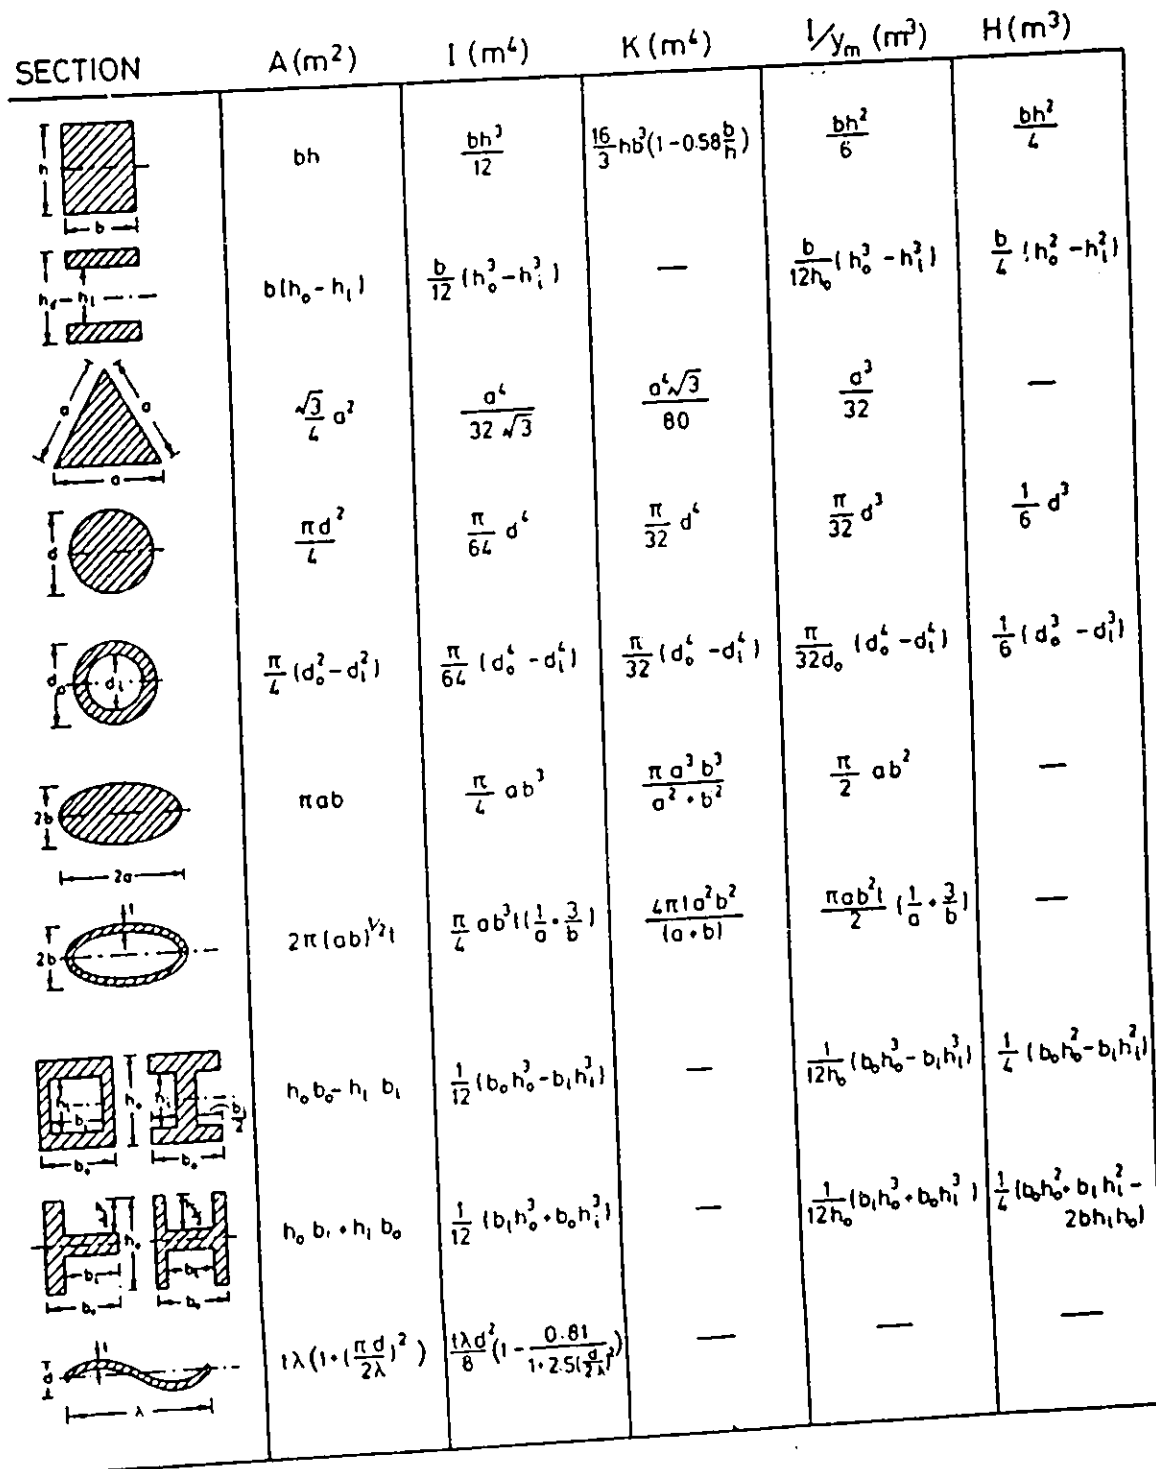 SECTION A (m²) I (m⁴) K (m⁴) I/yₘ (m³) H (m³)
h b bh bh³/12 16/3 hb³(1 - 0.58 b/h) bh²/6 bh²/4
h₀ hᵢ b(h₀ - hᵢ) b/12 (h₀³ - hᵢ³) — b/12h₀ (h₀³ - hᵢ³) b/4 (h₀² - hᵢ²)
a a a √3/4 a² a⁴/32√3 a⁴√3/80 a³/32 —
d πd²/4 π/64 d⁴ π/32 d⁴ π/32 d³ 1/6 d³
d₀ dᵢ π/4 (d₀² - dᵢ²) π/64 (d₀⁴ - dᵢ⁴) π/32 (d₀⁴ - dᵢ⁴) π/32d₀ (d₀⁴ - dᵢ⁴) 1/6 (d₀³ - dᵢ³)
2b 2a πab π/4 ab³ πa³b³/a² + b² π/2 ab² —
t 2b 2π(ab)^½t π/4 ab³t(1/a + 3/b) 4πta²b²/(a + b) πab²t/2 (1/a + 3/b) —
hᵢ bᵢ h₀ b₀ hᵢ bᵢ/2 b₀ h₀b₀ - hᵢ bᵢ 1/12 (b₀h₀³ - bᵢhᵢ³) — 1/12h₀ (b₀h₀³ - bᵢhᵢ³) 1/4 (b₀h₀² - bᵢhᵢ²)
h₀ bᵢ b₀ bᵢ b₀ h₀ bᵢ + hᵢ b₀ 1/12 (bᵢh₀³ + b₀hᵢ³) — 1/12h₀ (bᵢh₀³ + b₀hᵢ³) 1/4 (b₀h₀² + bᵢhᵢ² - 2bhᵢh₀)
t d λ tλ(1 + (πd/2λ)²) tλd²/8 (1 - 0.81/1 + 2.5(d/2λ)²) — — —